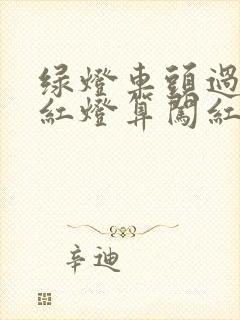 绿燈車頭過
紅燈算闖紅
辛迪